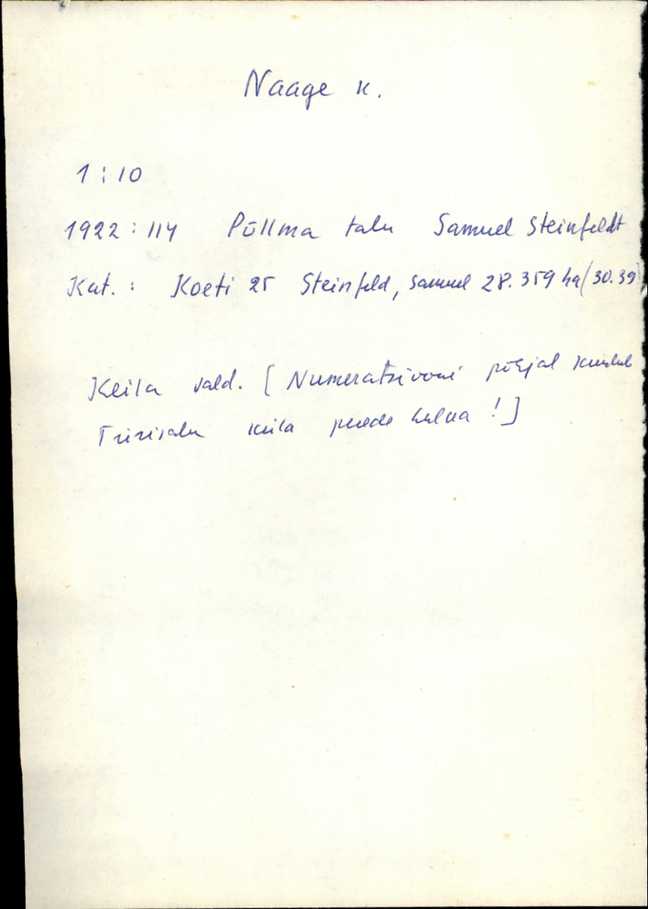 Naage k.
1:10
1922:114 Põllma talu Samuel Steinfeldt
Kat.: Koeti 25 Steinfeld, Samuel 28.359 ha (30.39)
Keila vald. [Numeratsiooni põhjal kuulub
Türisalu küla perede hulka!]